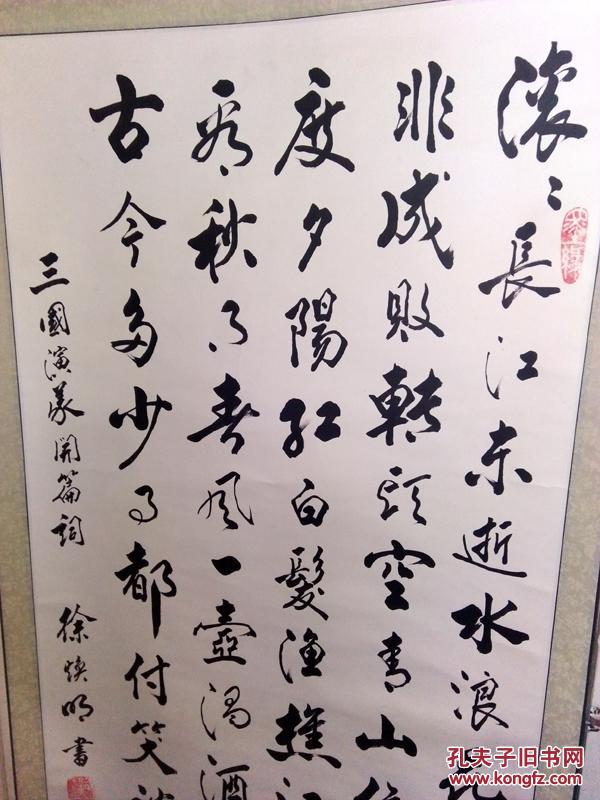 滚〻長江东逝水浪花
非成败转头空青山依
度夕陽红白髮渔樵江
看秋月春风一壶濁酒
古今多少事都付笑谈
三國演義開篇詞
徐焕明書
孔夫子旧书网
www.kongfz.com